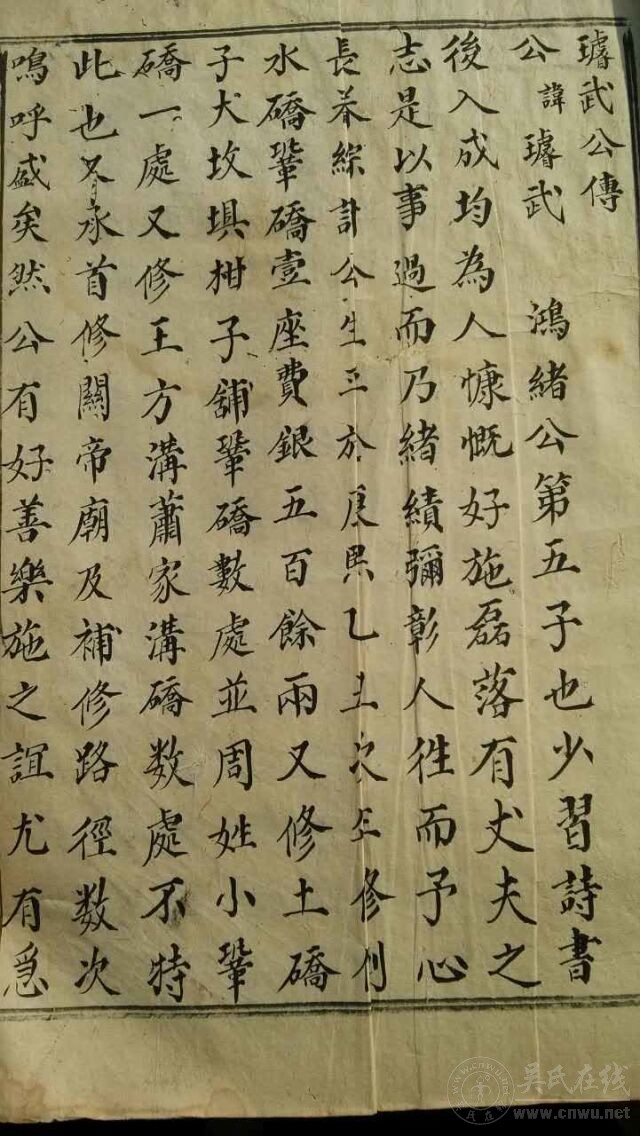 璿武公傳
公諱璿武 鴻緒公第五子也少習詩書
後入成均為人慷慨好施磊落有丈夫之
志是以事過而乃緒績彌彰人徃而予心
長綜計公生於乙丑次年修
水礄鞏礄壹座費銀五百餘兩又修土礄
子犬坟埧柑子舖鞏礄數處並周姓小鞏
礄一處又修王方溝蕭家溝礄数處不特
此也又承首修關帝廟及補修路徑数次
嗚呼盛矣然公有好善樂施之誼尤有急
吳氏在线
www.cnwu.net